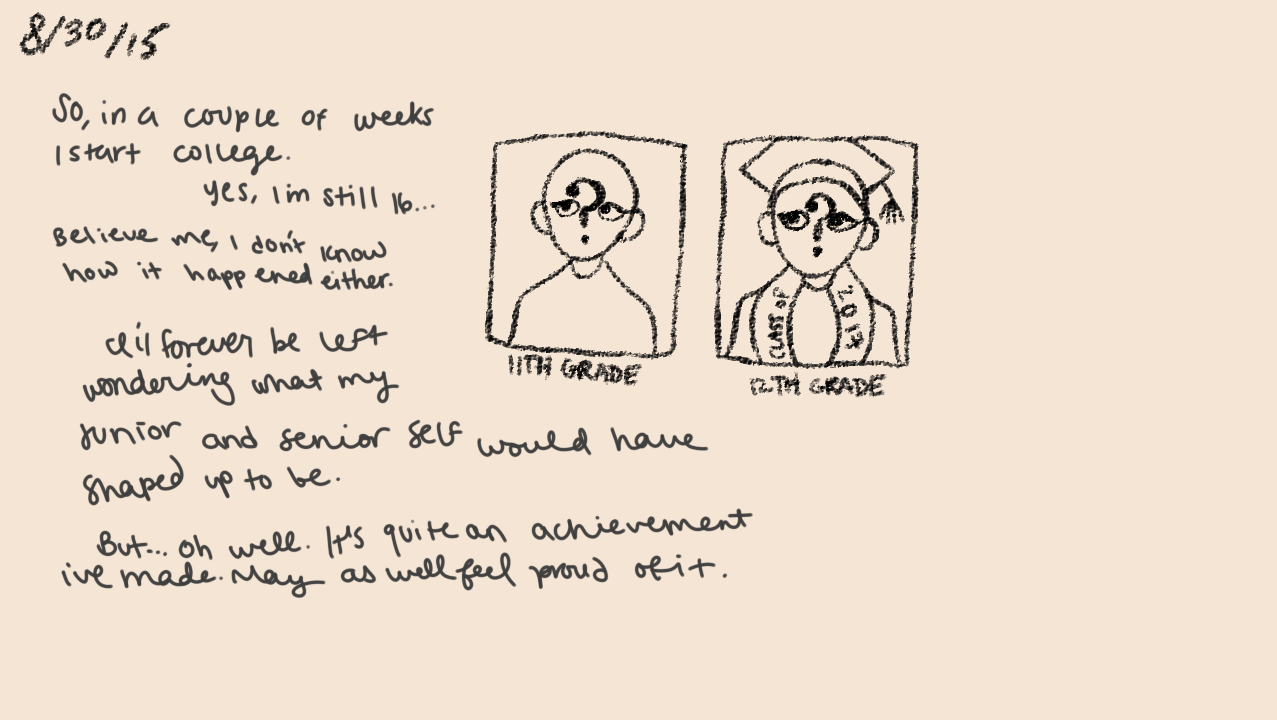 8/30/15
So, in a couple of weeks
I start college.
yes, I'm still 16...
Believe me, I don't know
how it happened either.
I'll forever be left
wondering what my
junior and senior self would have
shaped up to be.
But... oh well. It's quite an achievement
ive made. May as well feel proud of it.
?
11TH GRADE
?
CLASS OF
201*
12TH GRADE